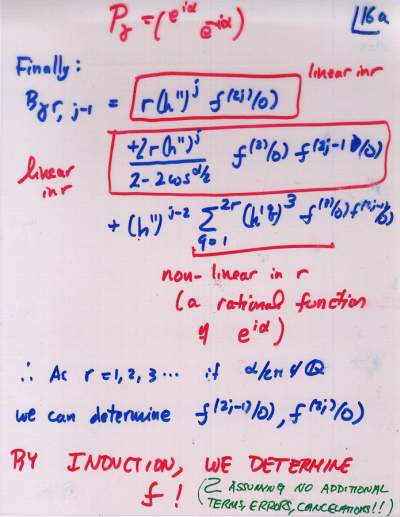 P_γ = (e^{iα} e^{-iα})
16a
Finally:
B_{γ^r, j-1} = r(h'')^j f^{(2j)}(0)
linear in r
+2r(h'')^j / 2-2cos α/2 f^{(3)}(0) f^{(2j-1)}(0)
linear in r
+ (h'')^{j-2} Σ_{q=1}^{2r} (h'q)^3 f^{(3)}(0) f^{(2j-1)}(0)
non-linear in r
(a rational function
of e^{iα})
∴ As r = 1, 2, 3 ... if α/2π ∉ ℚ
we can determine f^{(2j-1)}(0), f^{(2j)}(0)
BY INDUCTION, WE DETERMINE
f! (ASSUMING NO ADDITIONAL
TERMS, ERRORS, CANCELATIONS!!)